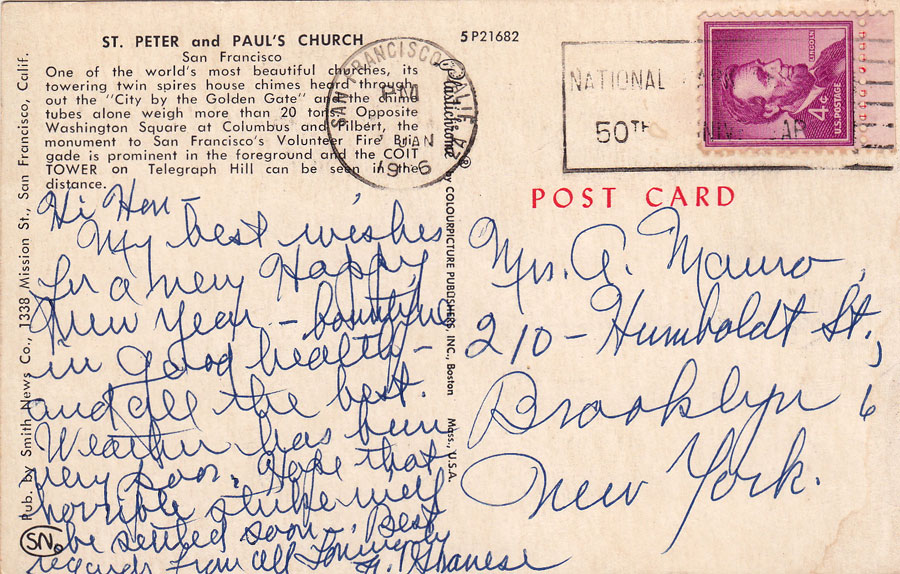 ST. PETER and PAUL'S CHURCH
San Francisco
One of the world's most beautiful churches, its
towering twin spires house chimes heard through-
out the "City by the Golden Gate" and the chime
tubes alone weigh more than 20 tons. Opposite
Washington Square at Columbus and Filbert, the
monument to San Francisco's Volunteer Fire Bri-
gade is prominent in the foreground and the COIT
TOWER on Telegraph Hill can be seen in the
distance.
5P21682
SAN FRANCISCO CALIF
PM
JAN
196
NATIONAL
50TH
LINCOLN
4¢
U.S. POSTAGE
POST CARD
Pub. by Smith News Co., 1338 Mission St., San Francisco, Calif.
SN
Plastichrome ® BY COLOURPICTURE PUBLISHERS, INC., Boston Mass., U.S.A.
Hi Hon –
My best wishes
for a very Happy
New Year – bountiful
in good health –
and all the best.
Weather has been
very poor. Hope that
horrible strike will
be settled soon –. Best
regards from all
Mrs. A. Mauro,
210 – Humboldt St.,
Brooklyn 6
New York.